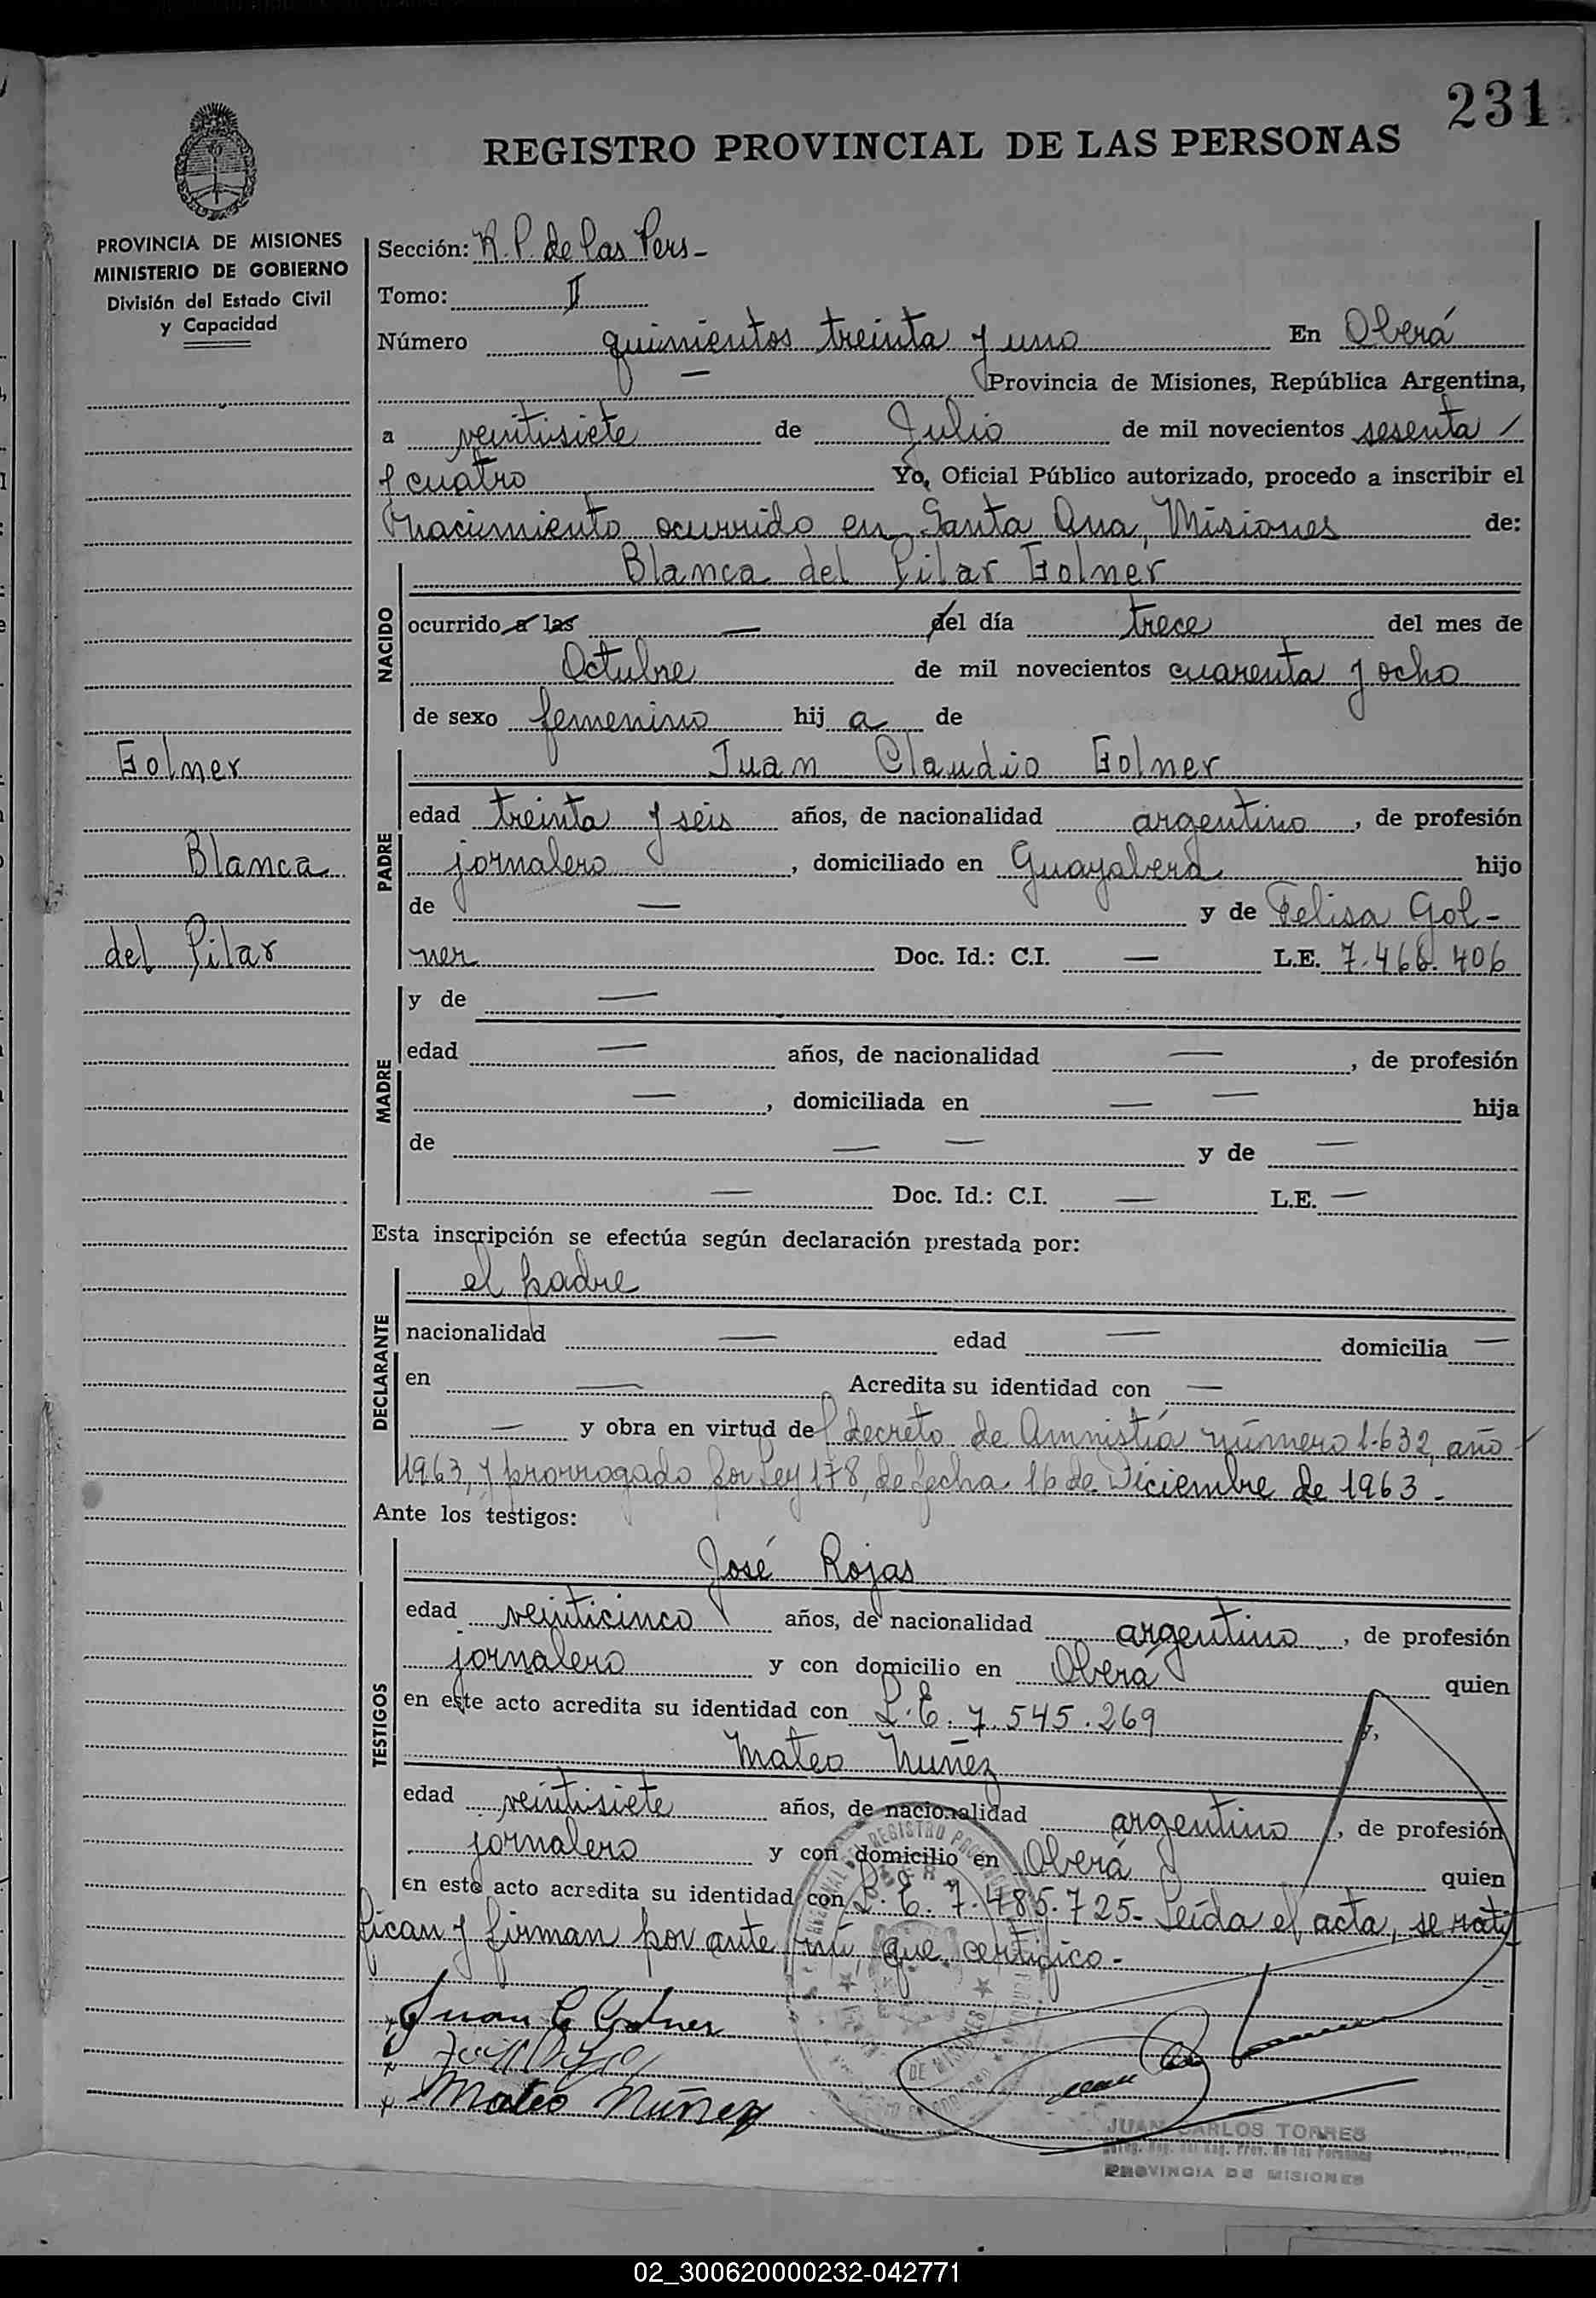 231
REGISTRO PROVINCIAL DE LAS PERSONAS
PROVINCIA DE MISIONES
MINISTERIO DE GOBIERNO
División del Estado Civil
y Capacidad
Golner
Blanca
del Pilar
Sección: R. P. de las Pers-
Tomo: II
Número quinientos treinta y uno En Oberá
— Provincia de Misiones, República Argentina,
a veintisiete de Julio de mil novecientos sesenta /
y cuatro Yo, Oficial Público autorizado, procedo a inscribir el
Nacimiento ocurrido en Santa Ana, Misiones de:
NACIDO
Blanca del Pilar Golner
ocurrido a las — del día trece del mes de
Octubre de mil novecientos cuarenta y ocho
de sexo femenino hij a de
PADRE
Juan Claudio Golner
edad treinta y seis años, de nacionalidad argentino, de profesión
jornalero, domiciliado en Guayabera hijo
de — y de Felisa Gol-
ner Doc. Id.: C.I. — L.E. 7.468.406
MADRE
y de —
edad — años, de nacionalidad —, de profesión
—, domiciliada en — — hija
de — — y de —
— Doc. Id.: C.I. — L.E. —
Esta inscripción se efectúa según declaración prestada por:
DECLARANTE
el padre
nacionalidad — edad — domicilia —
en — Acredita su identidad con —
— y obra en virtud de decreto de Amnistía número 1.632, año
1963, y prorrogado por Ley 178, de fecha 16 de Diciembre de 1963.-
Ante los testigos:
TESTIGOS
José Rojas
edad veinticinco años, de nacionalidad argentino, de profesión
jornalero y con domicilio en Oberá quien
en este acto acredita su identidad con L.E. 7.545.269 y,
Mateo Nuñez
edad veintisiete años, de nacionalidad argentino, de profesión
jornalero y con domicilio en Oberá quien
en este acto acredita su identidad con L.E. 7.485.725.- Leída el acta, se rati
fican y firman por ante mí, que certifico.-
Juan C Golner
Mateo Nuñez
JUAN CARLOS TORRES
PROVINCIA DE MISIONES
02_300620000232-042771